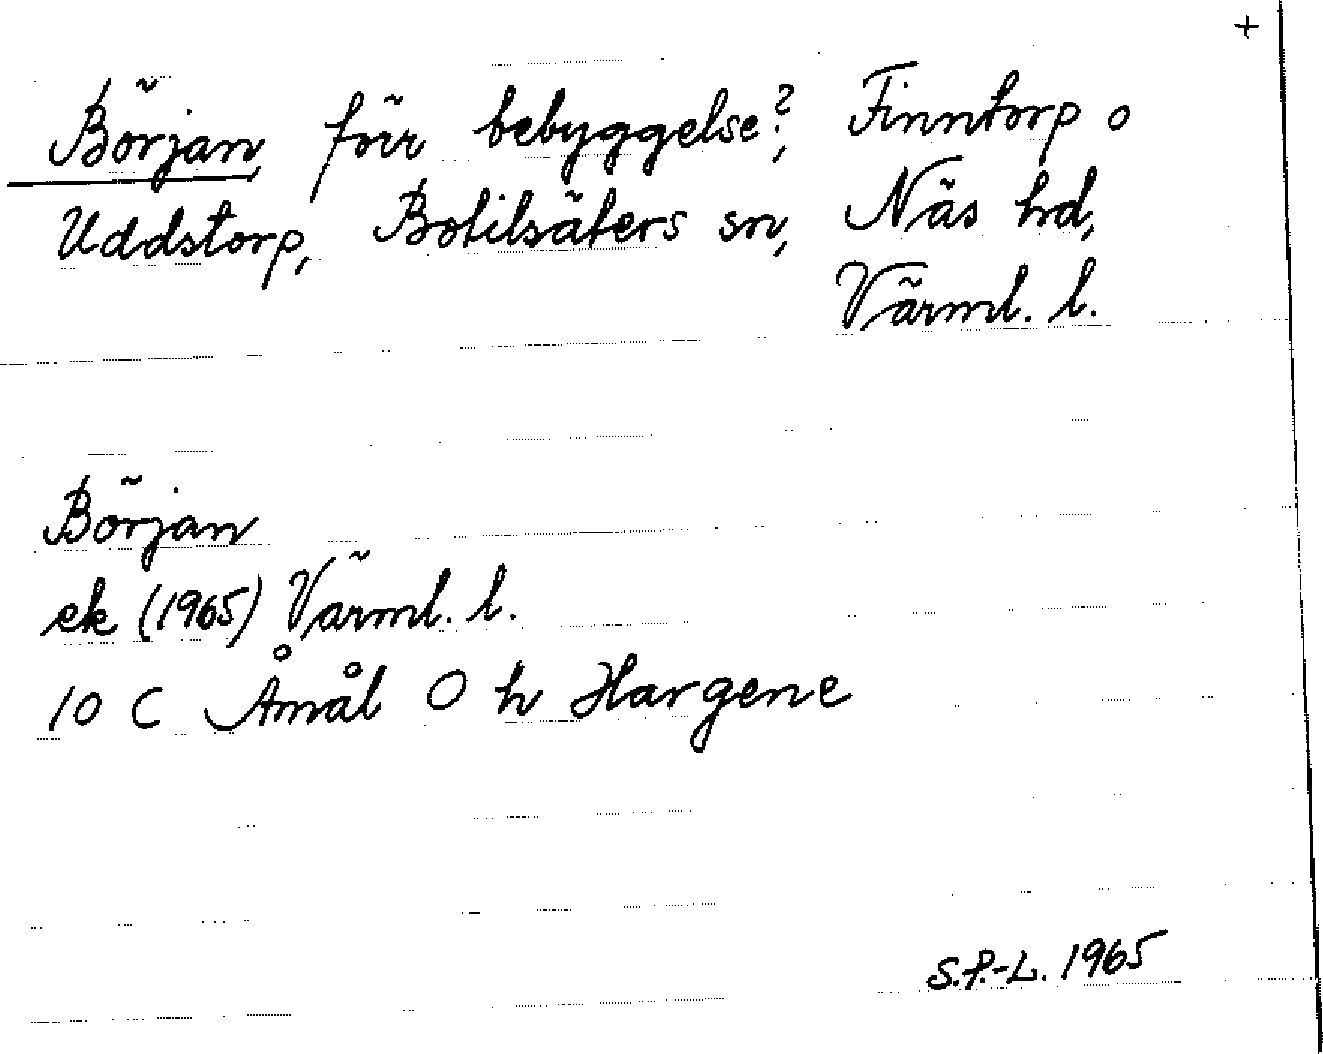 +
Början, förr bebyggelse?, Finntorp o
Uddstorp, Botilsäters sn, Näs hd,
Värml. l.
Början
ek (1965) Värml. l.
10 C Åmål O h Hargene
S.P.-L. 1965